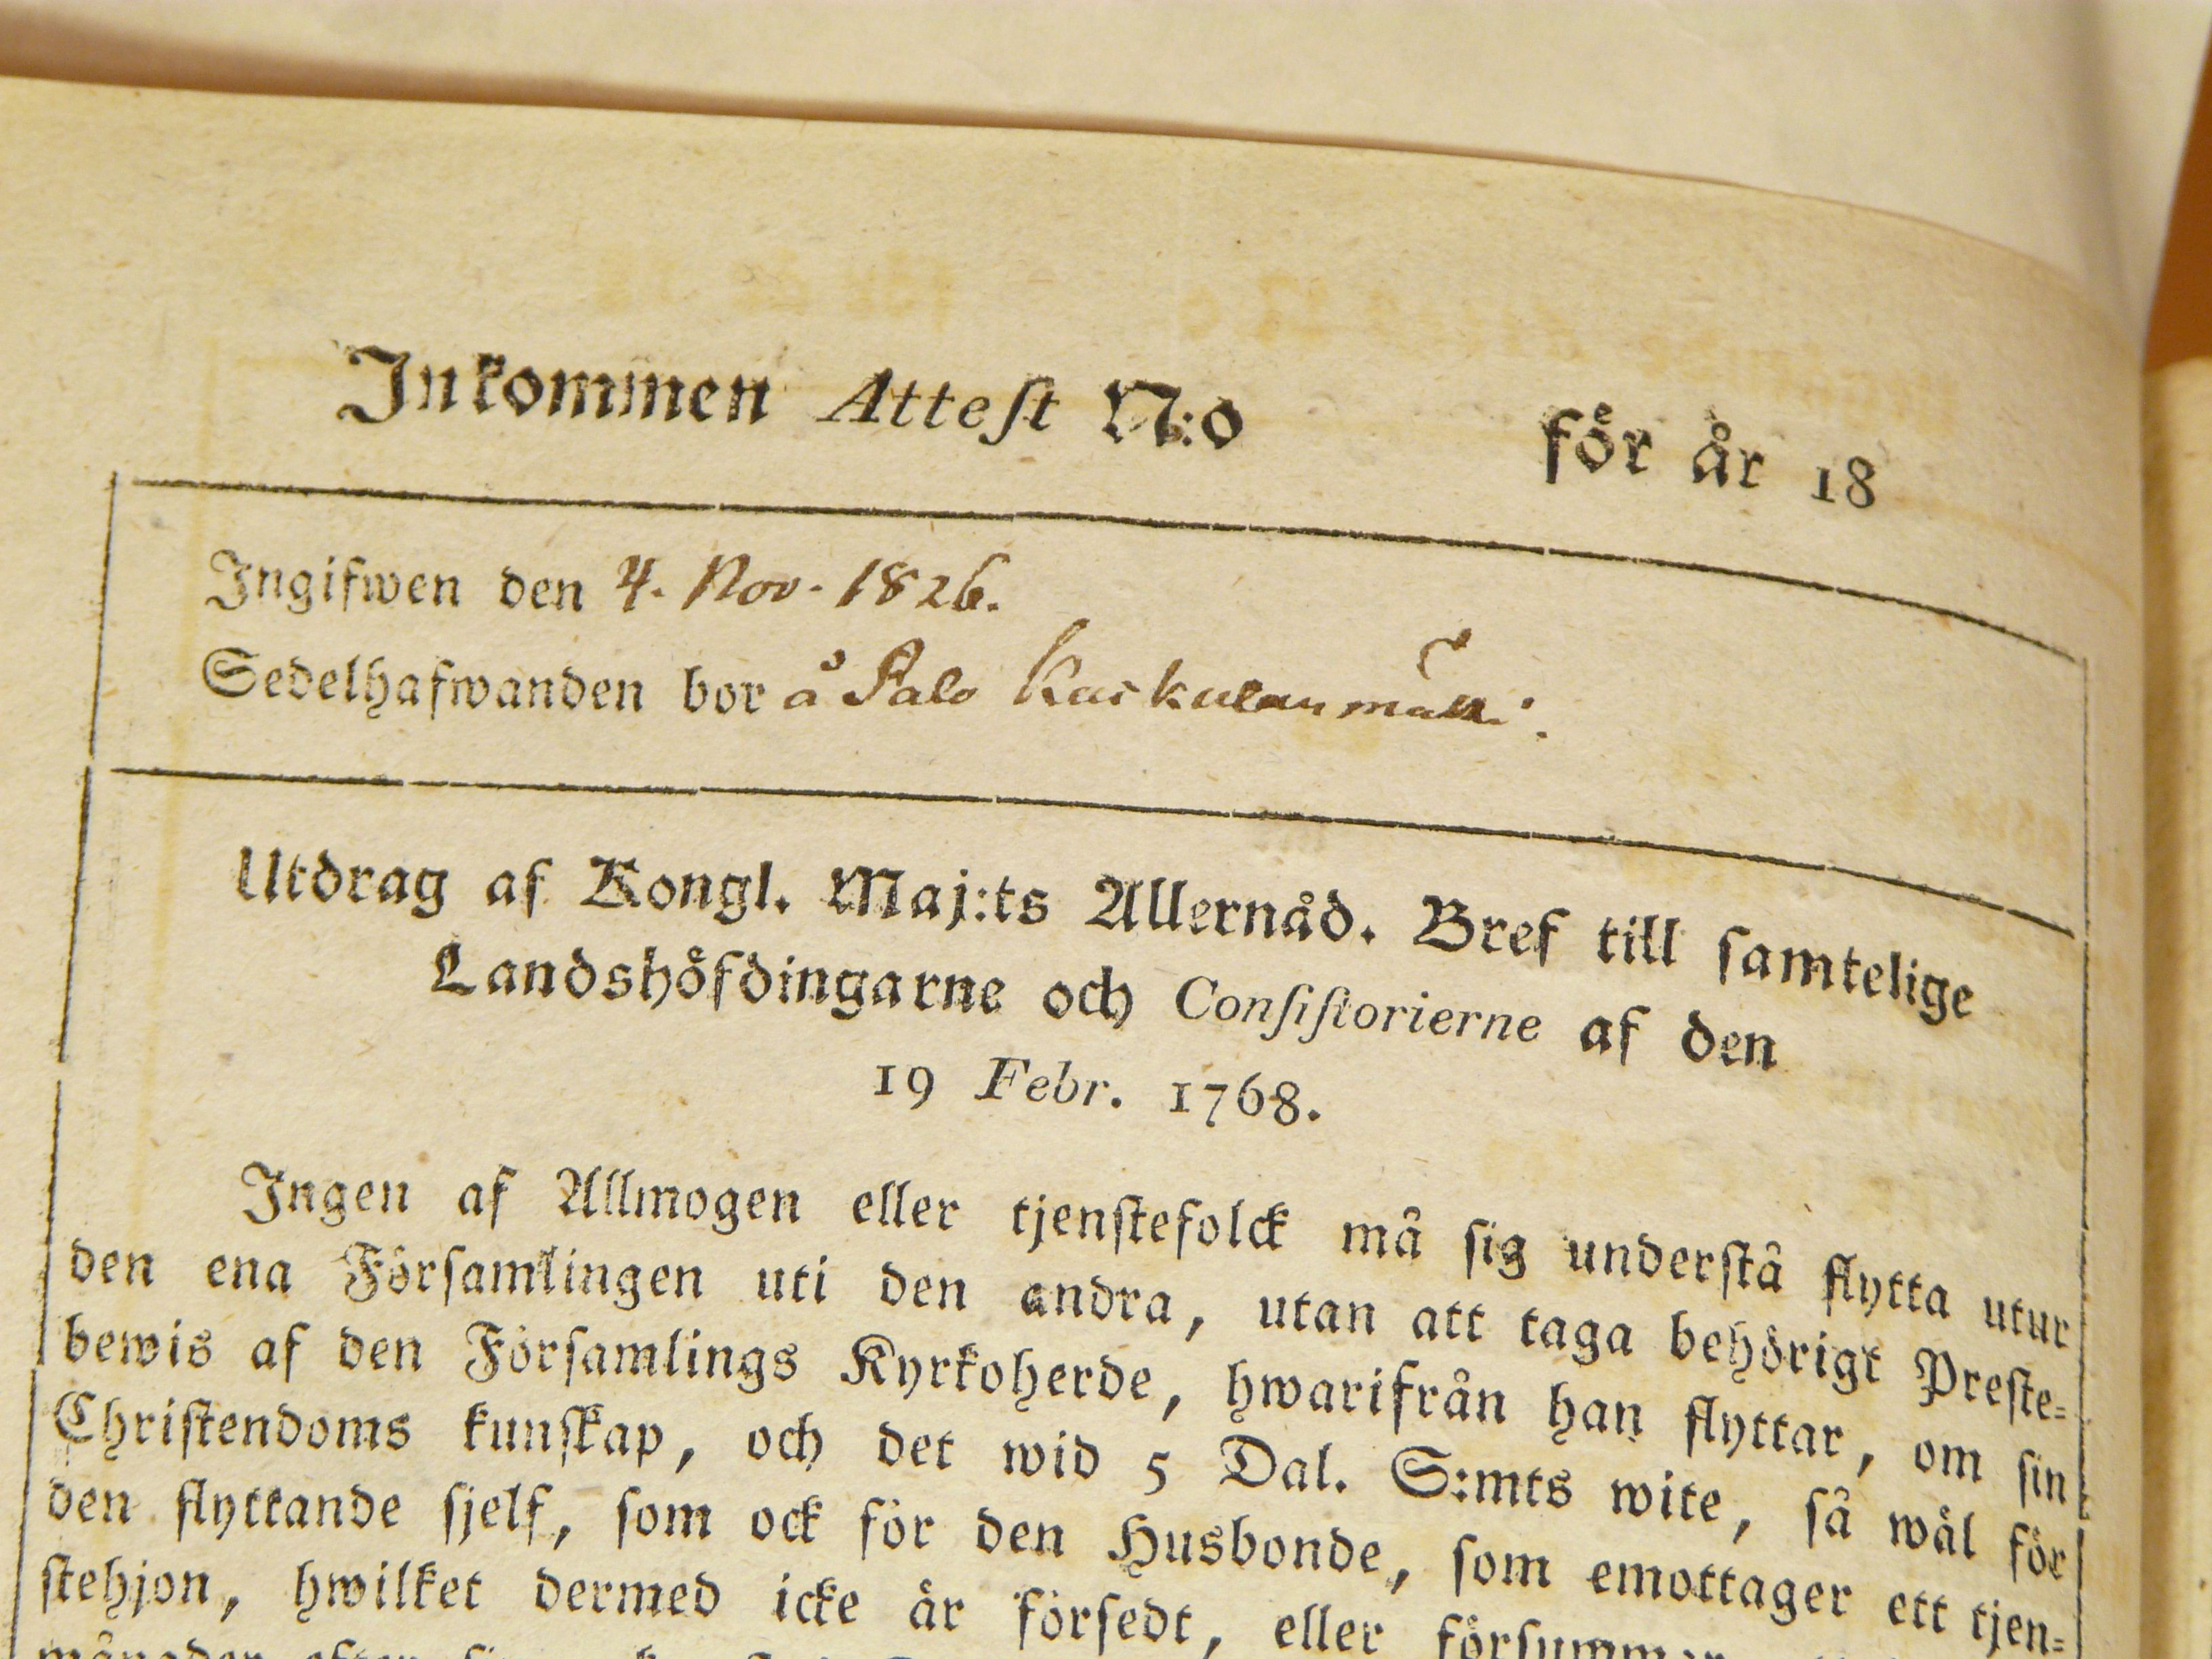 Inkommen Attest N:o för år 18
Ingifwen den 4. Nov. 1826.
Sedelhafwanden bor å Palo
Utdrag af Kongl. Maj:ts Allernåd. Bref till samtelige
Landshöfdingarne och Consistorierne af den
19 Febr. 1768.
Ingen af Allmogen eller tjenstefolck må sig understå flytta utur
den ena Församlingen uti den andra, utan att taga behörigt Preste-
bewis af den Församlings Kyrkoherde, hwarifrån han flyttar, om sin
Christendoms kunskap, och det wid 5 Dal. S:mts wite, så wäl för
den flyttande sjelf, som ock för den Husbonde, som emottager ett tjen-
stehjon, hwilket dermed icke är försedt, eller försummar
månader efter